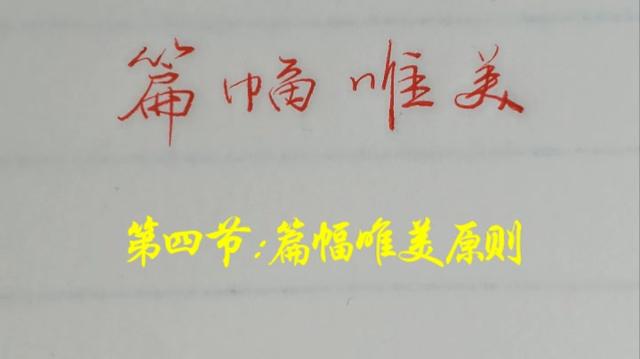 篇幅唯美
第四节:篇幅唯美原则